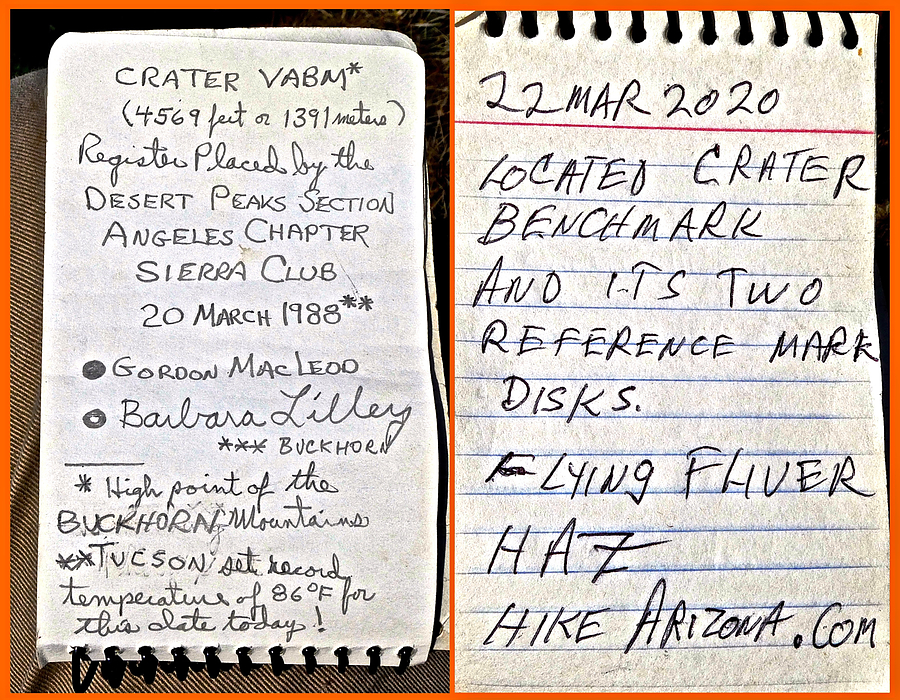 CRATER VABM*
(4569 feet or 1391 meters)
Register Placed by the
DESERT PEAKS SECTION
ANGELES CHAPTER
SIERRA CLUB
20 MARCH 1988**
GORDON MACLEOD
Barbara Lilley
*** BUCKHORN
* High point of the
BUCKHORN Mountains
**TUCSON set record
temperature of 86°F for
this date today!
22 MAR 2020
LOCATED CRATER
BENCHMARK
AND ITS TWO
REFERENCE MARK
DISKS.
FLYING FLIVER
HAZ
HIKE ARIZONA.COM